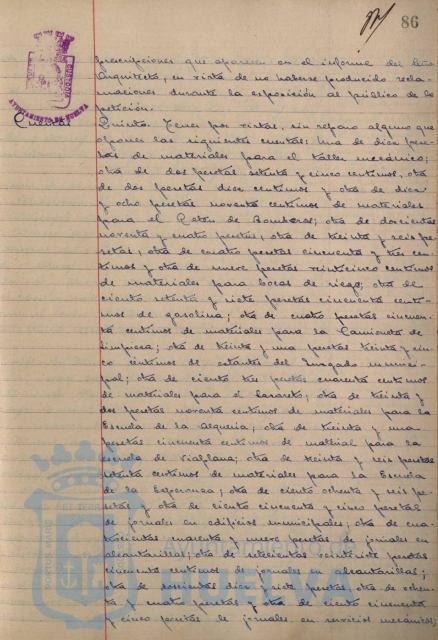 86
prescripciones que aparecen en el informe del Señor
Arquitecto, en vista de no haberse producido recla-
maciones durante la exposición al público de la
petición.
AYUNTAMIENTO DE HUELVA
Cuentas
Quinto. Tener por vistas, sin reparo alguno que
oponer las siguientes cuentas: Una de diez pese-
tas de materiales para el taller mecánico;
otra de dos pesetas setenta y cinco centimos, otra
de dos pesetas diez centimos y otra de diez
y ocho pesetas noventa centimos de materiales
para el Retén de Bomberos; otra de doscientas
noventa y cuatro pesetas, otra de treinta y seis pe-
setas, otra de cuatro pesetas cincuenta y tres cen-
timos y otra de nueve pesetas veinticinco centimos
de materiales para bocas de riego; otra de
ciento setenta y siete pesetas cincuenta centi-
mos de gasolina; otra de cuatro pesetas cincuen-
ta centimos de materiales para la Camioneta de
limpieza; otra de treinta y una pesetas treinta y cin-
co centimos de estantes del Juzgado munici-
pal; otra de ciento tres pesetas cuarenta centimos
de materiales para el Lazareto; otra de treinta y
dos pesetas noventa centimos de materiales para la
Escuela de la Alqueria; otra de treinta y una
pesetas cincuenta centimos de material para la
escuela de Viaplana; otra de treinta y seis pesetas
setenta centimos de materiales para la Escuela
de la Esperanza; otra de ciento ochenta y seis pe-
setas y otra de ciento cincuenta y cinco pesetas
de jornales en edificios municipales; otra de cua-
trocientas cuarenta y nueve pesetas de jornales en
alcantarillas; otra de setecientas veintisiete pesetas
cincuenta centimos de jornales en alcantarillas;
otra de doscientas diez y siete pesetas, otra de ochen-
ta y cuatro pesetas y otra de ciento cincuenta
y cinco pesetas de jornales en servicios mecánicos